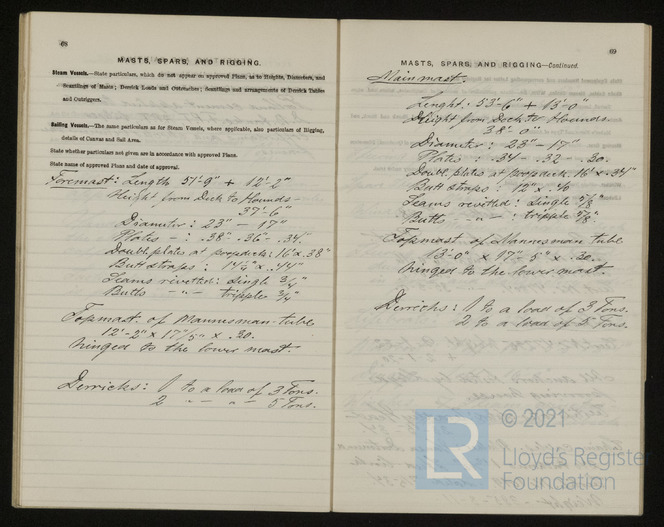 68
MASTS, SPARS, AND RIGGING.
Steam Vessels.—State particulars, which do not appear on approved Plans, as to Heights, Diameters, and
Scantlings of Masts; Derrick Loads and Outreaches; Scantlings and arrangements of Derrick Tables
and Outriggers.
Sailing Vessels.—The same particulars as for Steam Vessels, where applicable, also particulars of Rigging,
details of Canvas and Sail Area.
State whether particulars not given are in accordance with approved Plans.
State name of approved Plans and date of approval.
Foremast: Length 51'-9" + 12'-2"
Height from Deck to Hounds -
37'-6"
Diameter: 23" - 17"
Plates - : .38" - .36" - .34"
Double plates at : 16' x .38"
Butt straps : x .44"
Seams rivetted: Single 3/4"
Butts - " - tripple 3/4"
Topmast of Mannesman-tube
12'-2" x x .30.
hinged to the lower mast.
Derricks: 1 to a load of 3 Tons.
2 - " - " - 5 Tons.
69
MASTS, SPARS, AND RIGGING—Continued.
Mainmast.
Lenght: 53'-6" + 13'-0"
Height from Deck to Hounds.
38'-0"
Diameter: 23" - 17"
Plates : .34 - .32 - .30.
Doubl. plates at : 16' x .34"
Butt straps : 12" x .40
Seams rivetted: Single 5/8"
Butts - " - : tripple 5/8"
Topmast of Mannesman tube
13'-0" x x .30.
hinged to the lower mast
Derricks: 1 to a load of 3 Tons.
2 to a load of 5 Tons.
LR
© 2021
Lloyd's Register
Foundation